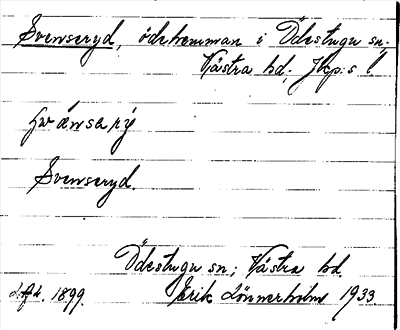 Svenseryd, ödehemman i Ödestugu sn;
Västra hd; Jkp:s l
Svenseryd.
Ödestugu sn; Västra hd.
1899. Erik Lönnerholm 1933